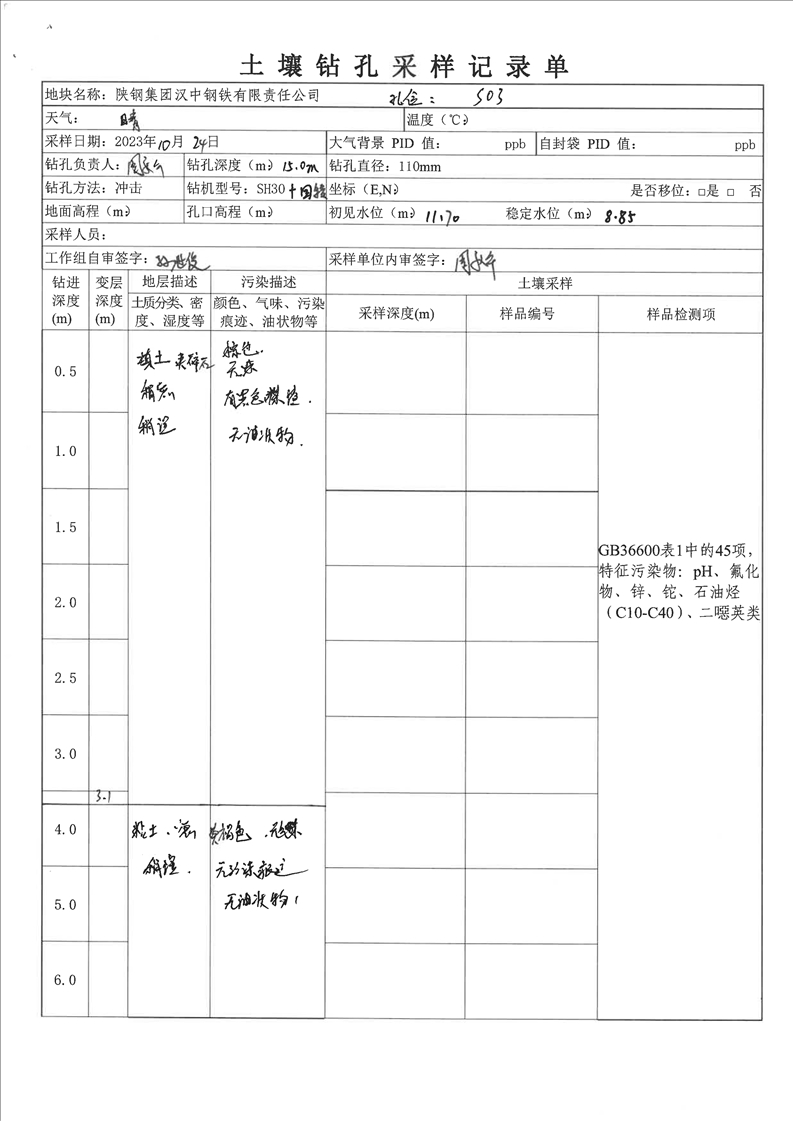 土壤钻孔采样记录单
地块名称：陕钢集团汉中钢铁有限责任公司 孔位： S03
天气： 晴 温度（℃）
采样日期：2023年10月24日 大气背景 PID 值： ppb 自封袋 PID 值： ppb
钻孔负责人： 钻孔深度（m）15.0m 钻孔直径：110mm
钻孔方法：冲击 钻机型号：SH30+回转 坐标（E,N） 是否移位：□是 □ 否
地面高程（m） 孔口高程（m） 初见水位（m）11.70 稳定水位（m）8.85
采样人员：
工作组自审签字： 采样单位内审签字：
钻进深度(m) 变层深度(m) 地层描述 污染描述 土壤采样
土质分类、密度、湿度等 颜色、气味、污染痕迹、油状物等 采样深度(m) 样品编号 样品检测项
0.5 填土 夹碎石 棕色.
无味
稍密 有黑色
稍湿 无油状物.
1.0
1.5
GB36600表1中的45项，
特征污染物：pH、氟化
物、锌、铊、石油烃
（C10-C40）、二噁英类
2.0
2.5
3.0
3.1
4.0 粘土. 黄褐色.无味
稍湿. 无污染痕迹
5.0 无油状物
6.0